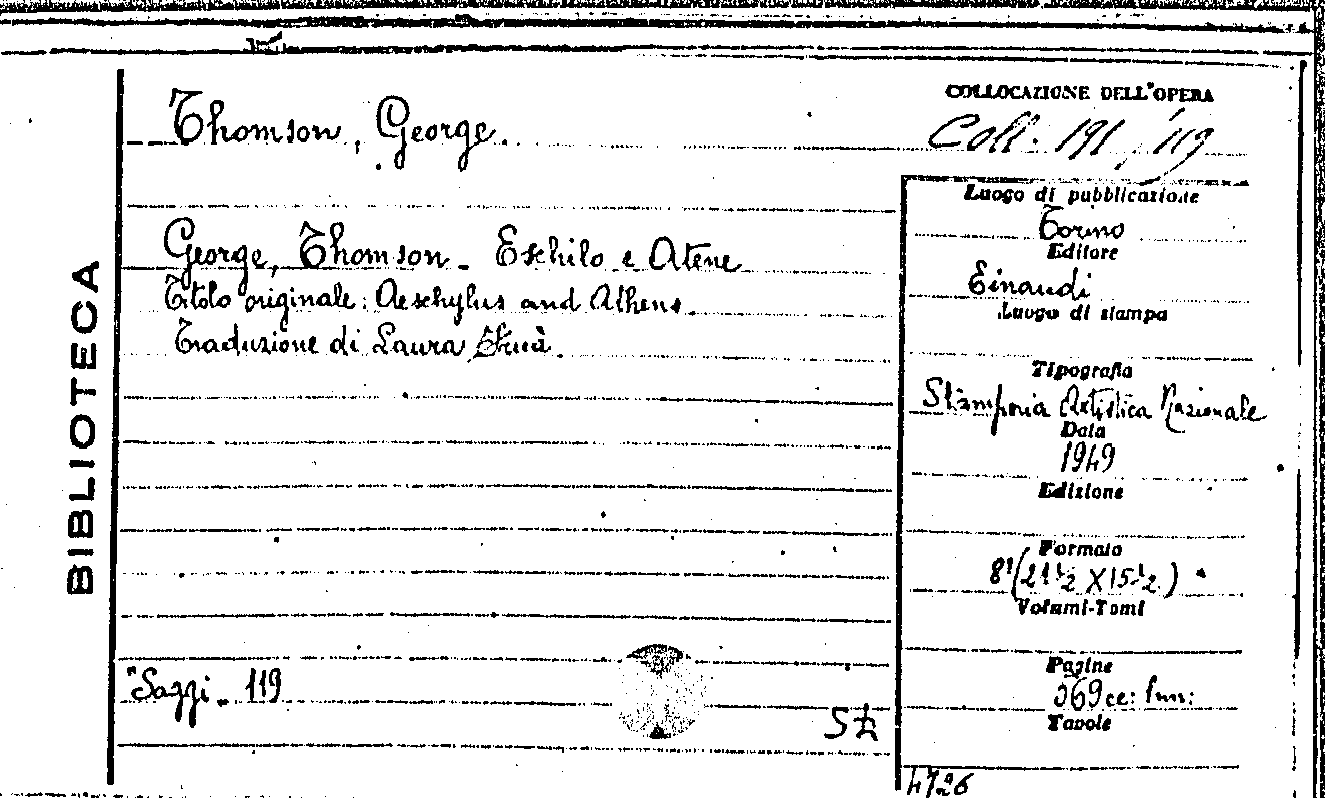 BIBLIOTECA
Thomson, George.
George, Thomson - Eschilo e Atene
Titolo originale: Aeschylus and Athens.
Traduzione di Laura
"Saggi - 119
COLLOCAZIONE DELL'OPERA
Coll. 191/119
Luogo di pubblicazione
Torino
Editore
Einaudi
Luogo di stampa
Tipografia
Stamperia Artistica Nazionale
Data
1949
Edizione
Formato
8°(21½ X15½)
Volumi-Tomi
Pagine
Tavole
4726